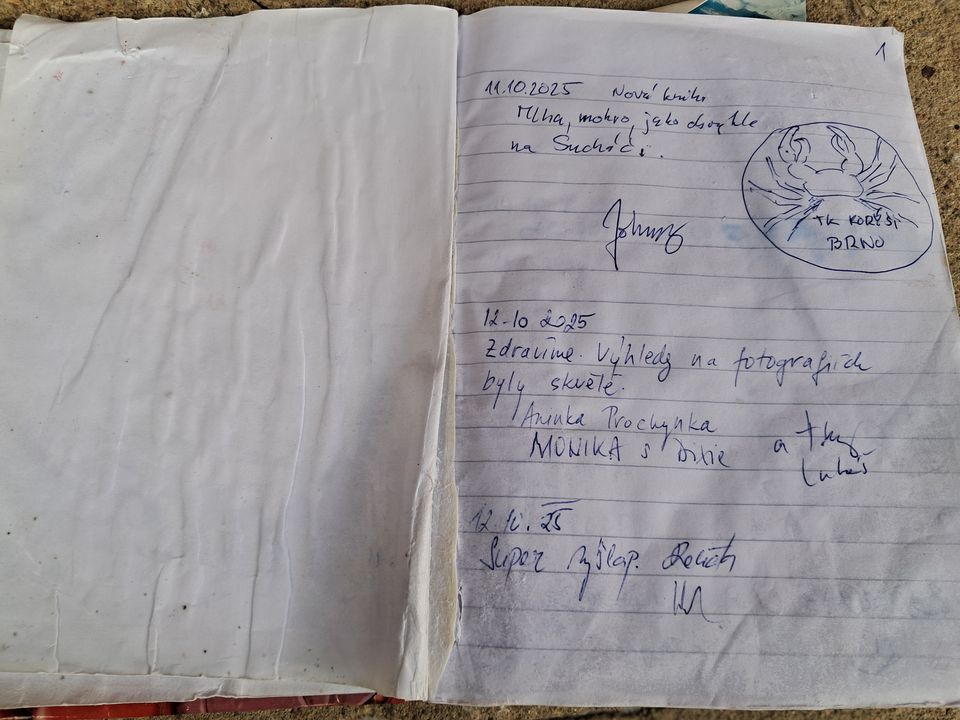 1
11.10.2025 Nová kniha
Mlha, mokro, jako obvykle
na Sucháči.
Johny
TK KORÝŠI
BRNO
12.10 2025
Zdravíme. Výhledy na fotografiích
byly skvělé.
Aninka Prochynka
MONIKA s Dixie a
Lukáš
12.10.25
Super výšlap.